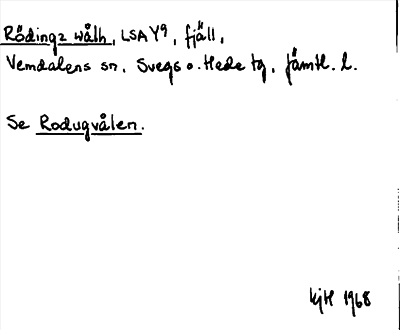 Rödingz wålh, LSA Y9, fjäll,
Vemdalens sn, Svegs o. Hede tg, Jämtl. l.
Se Rodugvålen.
kjH 1968